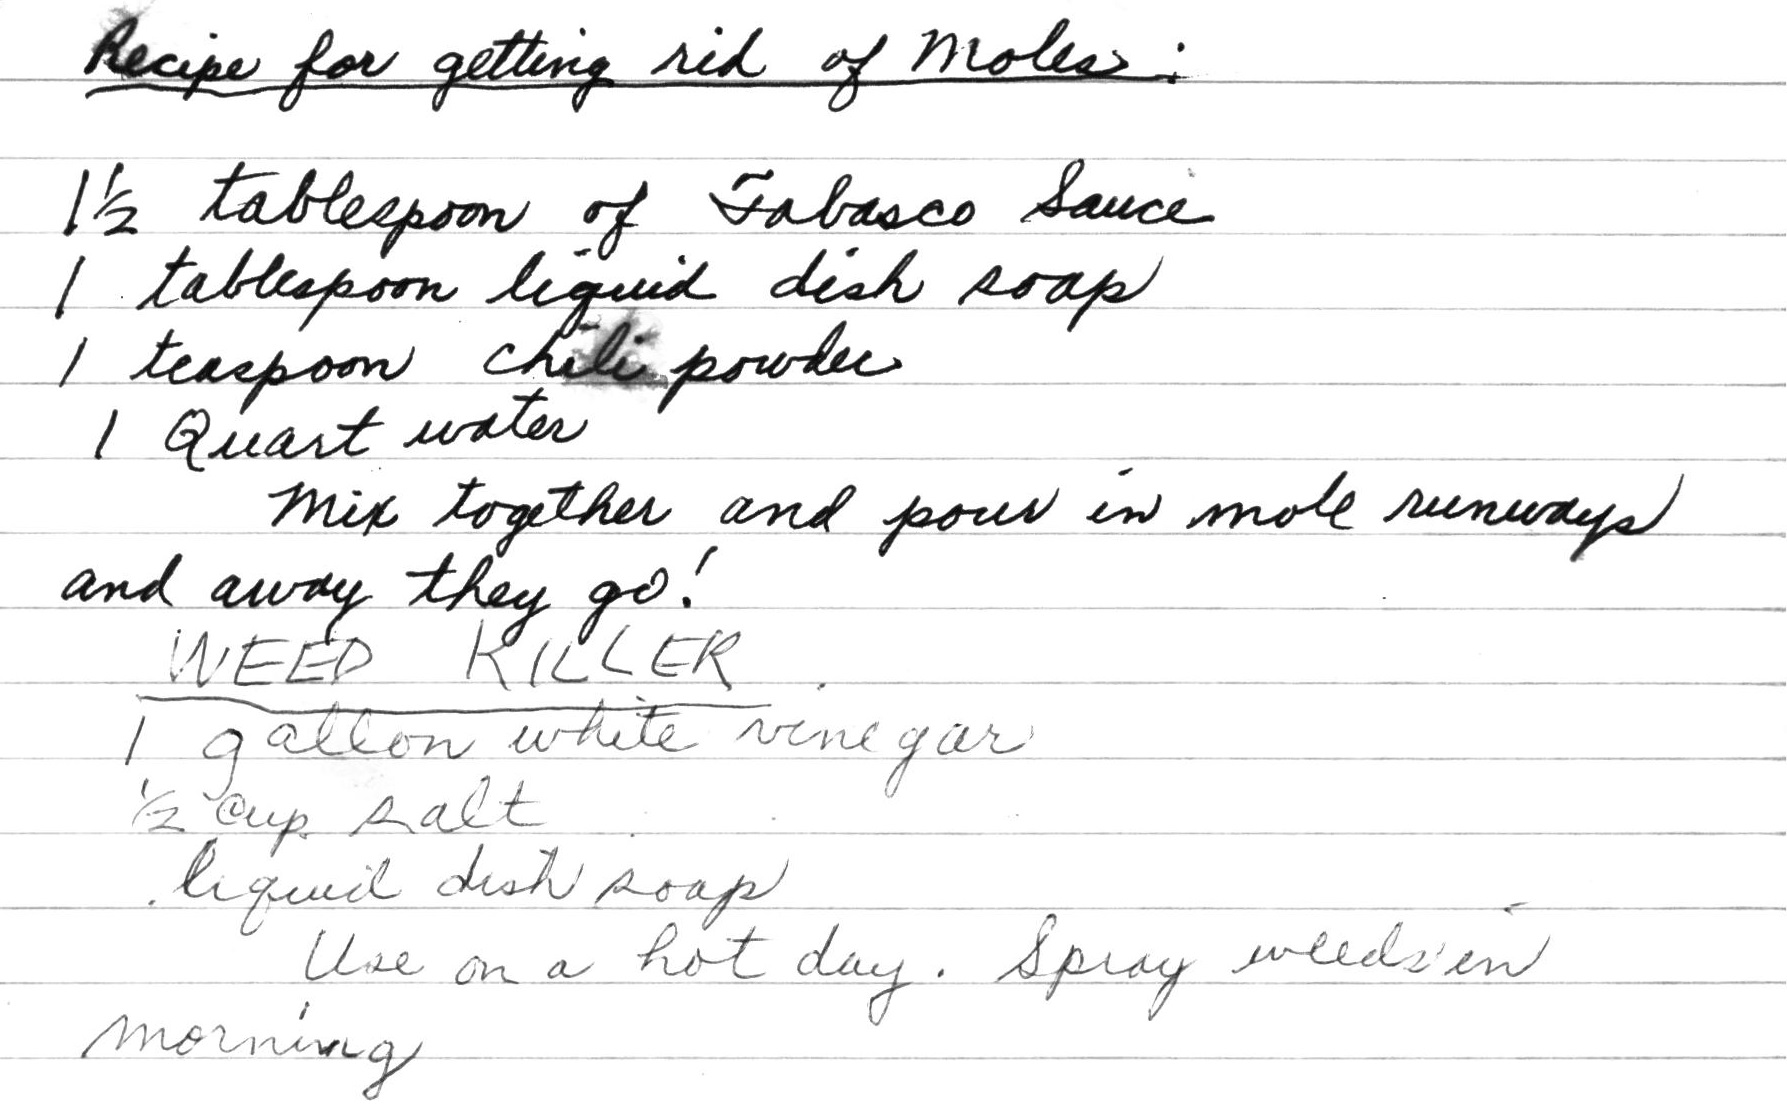 Recipe for getting rid of Moles:
1 1/2 tablespoon of Tabasco Sauce
1 tablespoon liquid dish soap
1 teaspoon chili powder
1 Quart water
Mix together and pour in mole runways
and away they go!
WEED KILLER
1 gallon white vinegar
1/2 cup salt
liquid dish soap
Use on a hot day. Spray weeds in
morning